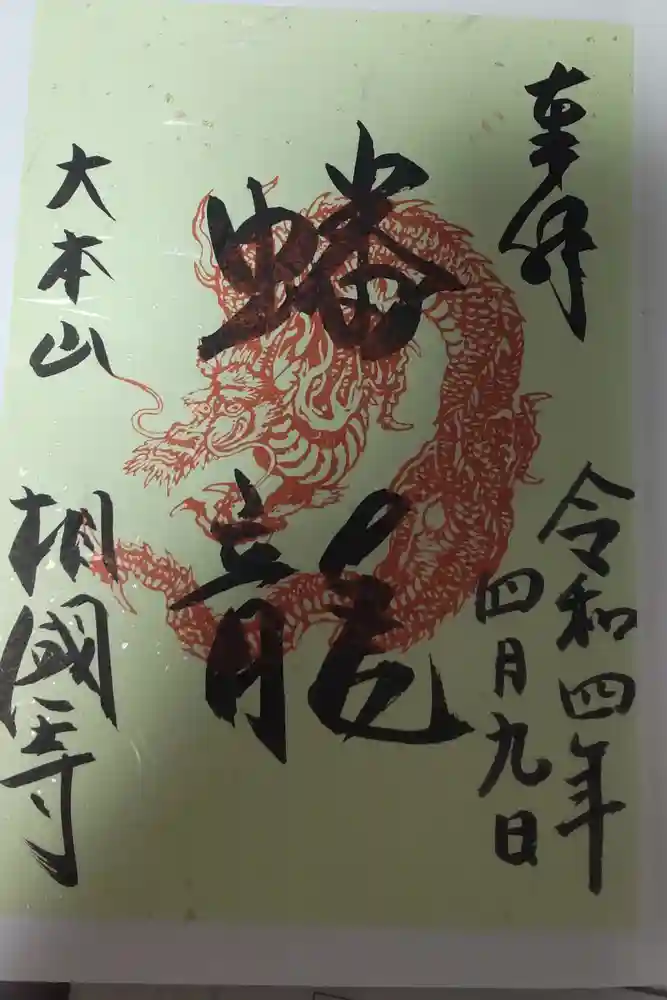 奉拝
令和四年
四月九日
蟠龍
大本山
相國寺